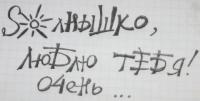 Sолнышко,
люблю тебя!
очень...